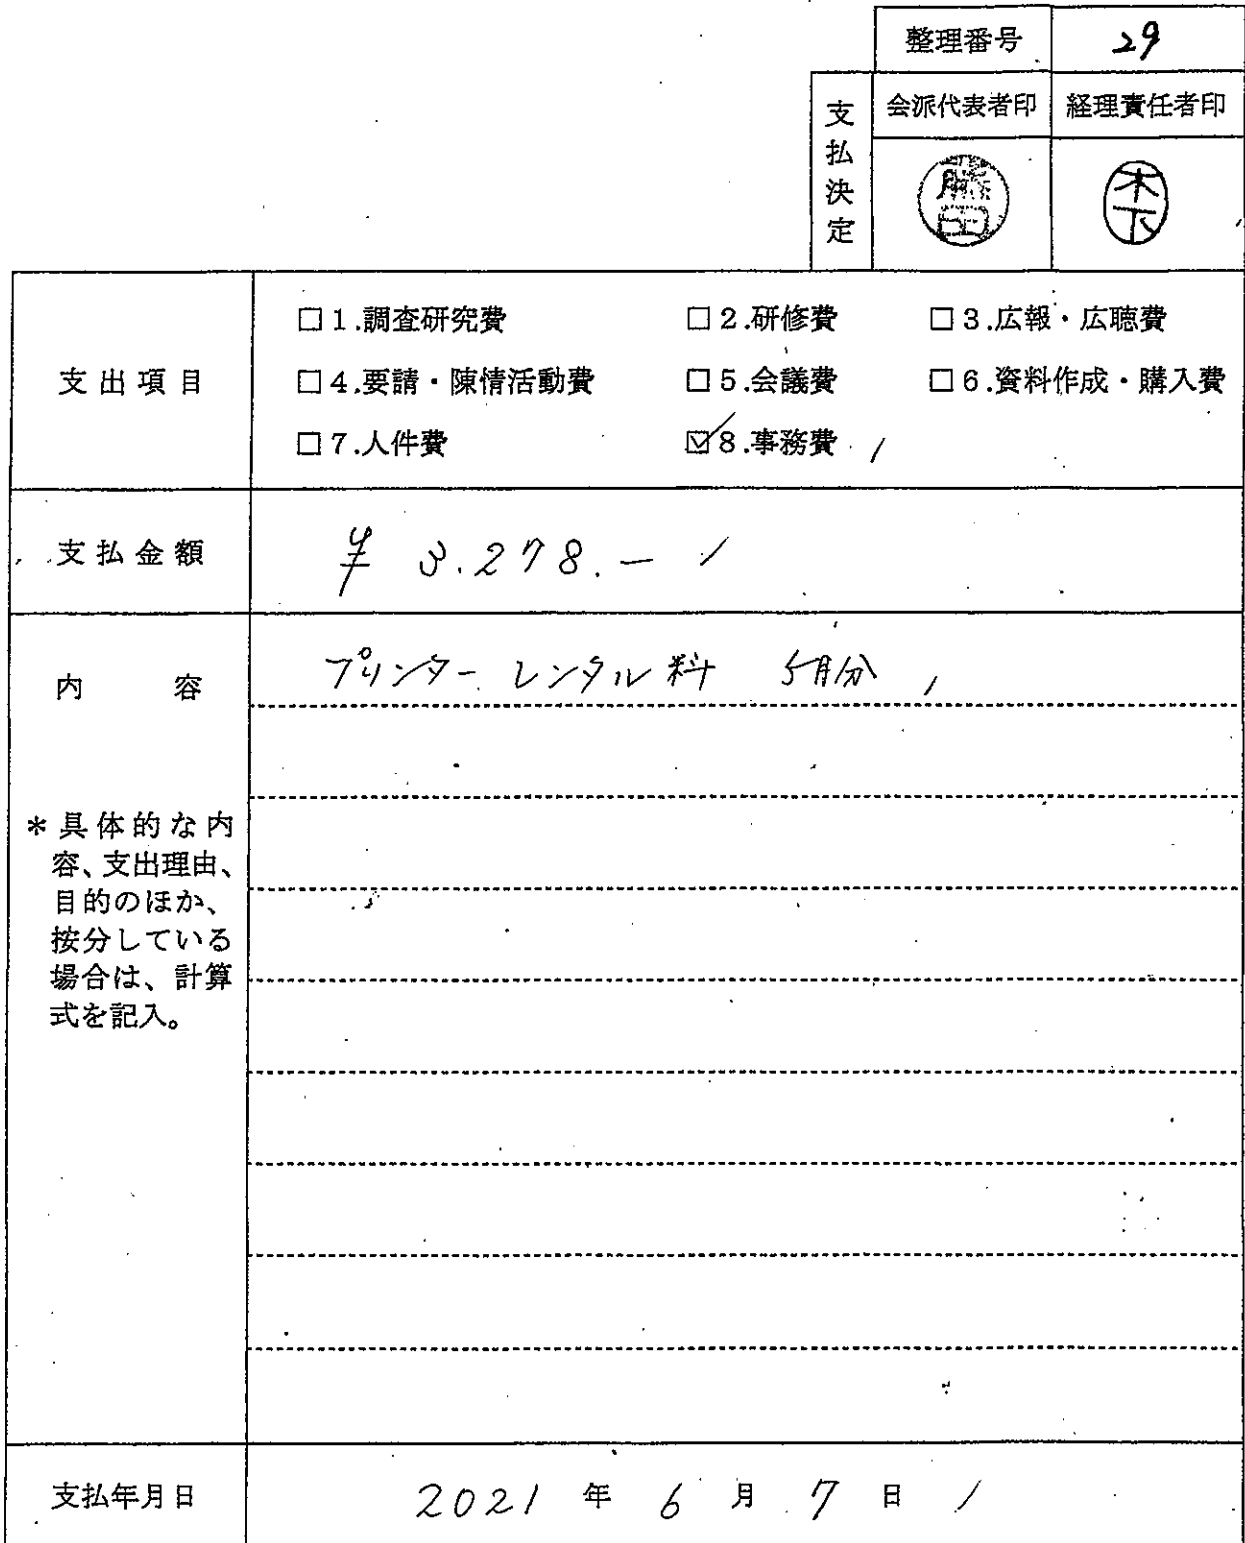 整理番号 29
支払決定
会派代表者印 経理責任者印
木下
支出項目
□1.調査研究費 □2.研修費 □3.広報・広聴費
□4.要請・陳情活動費 □5.会議費 □6.資料作成・購入費
□7.人件費 ☑8.事務費
支払金額 ¥ 3.278.-
内容 プリンターレンタル料 5月分
*具体的な内
容、支出理由、
目的のほか、
按分している
場合は、計算
式を記入。
支払年月日 2021 年 6 月 7 日